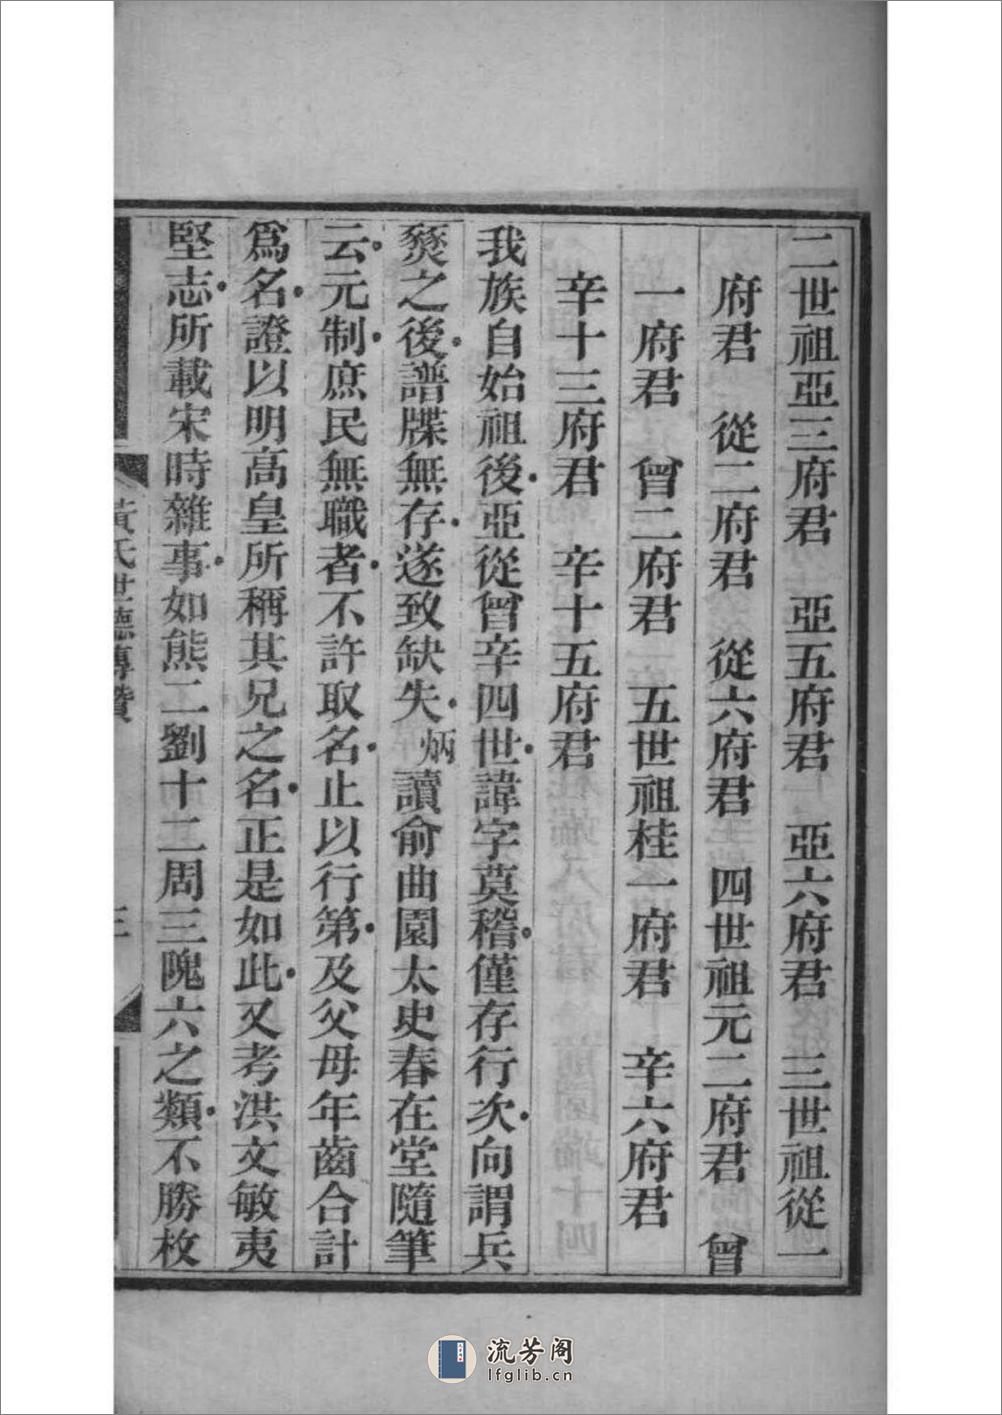 二世祖亞三府君　亞五府君　亞六府君　三世祖從一
府君　從二府君　從六府君　四世祖元二府君　曾
一府君　曾二府君　五世祖桂一府君　辛六府君
辛十三府君　辛十五府君
我族自始祖後亞從曾辛四世諱字莫稽僅存行次向謂兵
燹之後譜牒無存遂致缺失炳讀俞曲園太史春在堂隨筆
云元制庶民無職者不許取名止以行第及父母年齒合計
爲名證以明高皇所稱其兄之名正是如此又考洪文敏夷
堅志所載宋時雜事如熊二劉十二周三隗六之類不勝枚
黃氏世德傳贊
三
流芳阁
lfglib.cn